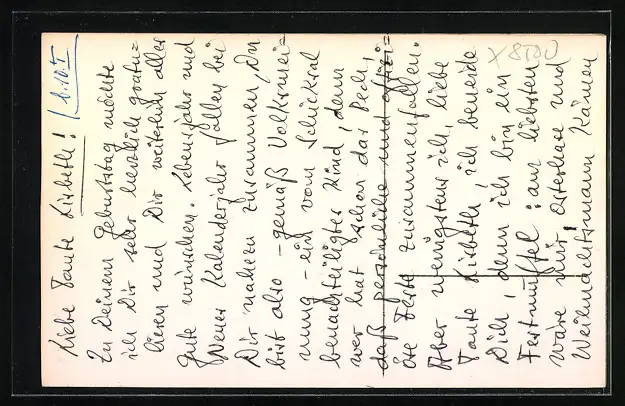 Liebe Tante Lisbeth!
Zu Deinem Geburtstag möchte
ich Dir sehr herzlich gratu=
lieren und Dir weiterhin alles
Gute wünschen. Lebensjahr und
Neues Kalenderjahr fallen bei
Dir nahezu zusammen, Du
bist also - gemäß Volksmei=
nung - ein vom Schicksal
benachteiligtes Kind, denn
wer hat schon das Pech,
daß persönliche und offizi=
öse Feste zusammenfallen.
Aber wenigstens ich, liebe
Tante Lisbeth, ich beneide
Dich, denn ich bin ein
Festmuffel: am liebsten
wäre mir Osterhase und
Weihnachtsmann kämen